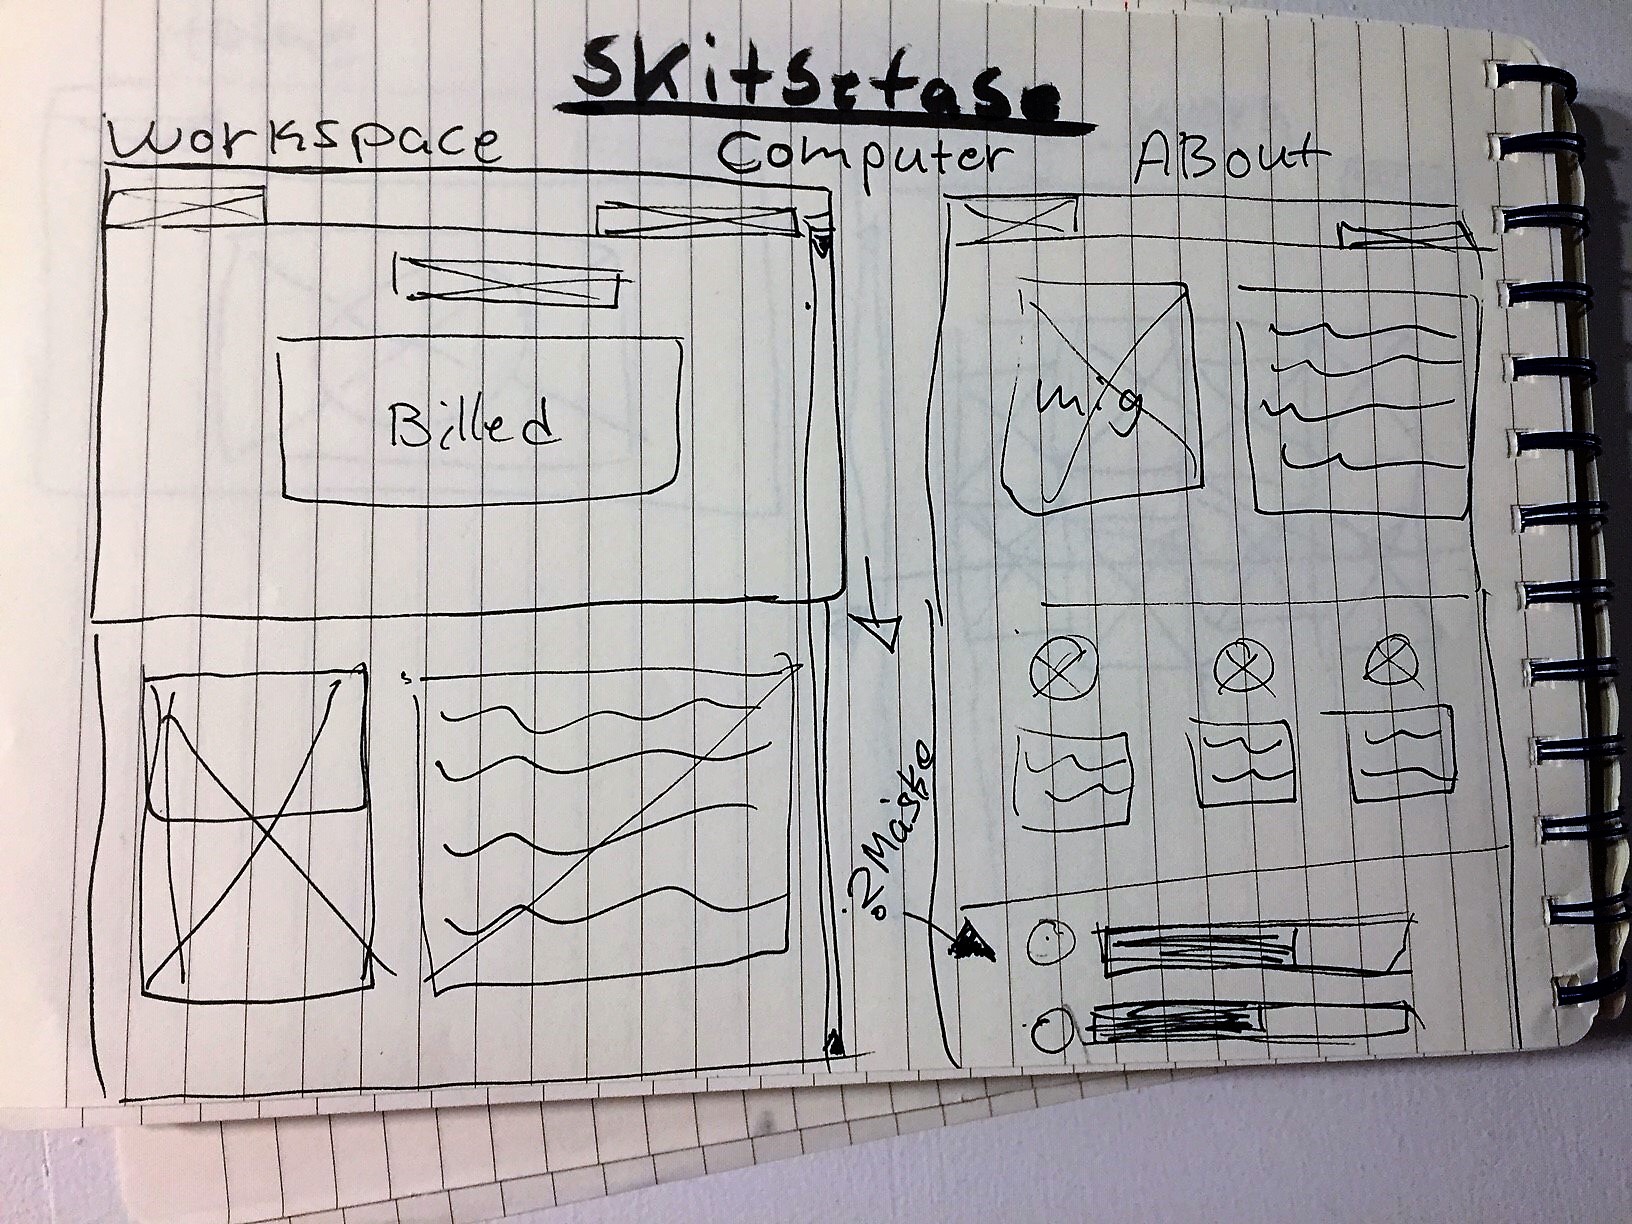 Skitsefase
Workspace
Computer
ABout
Billed
mig
? Måske